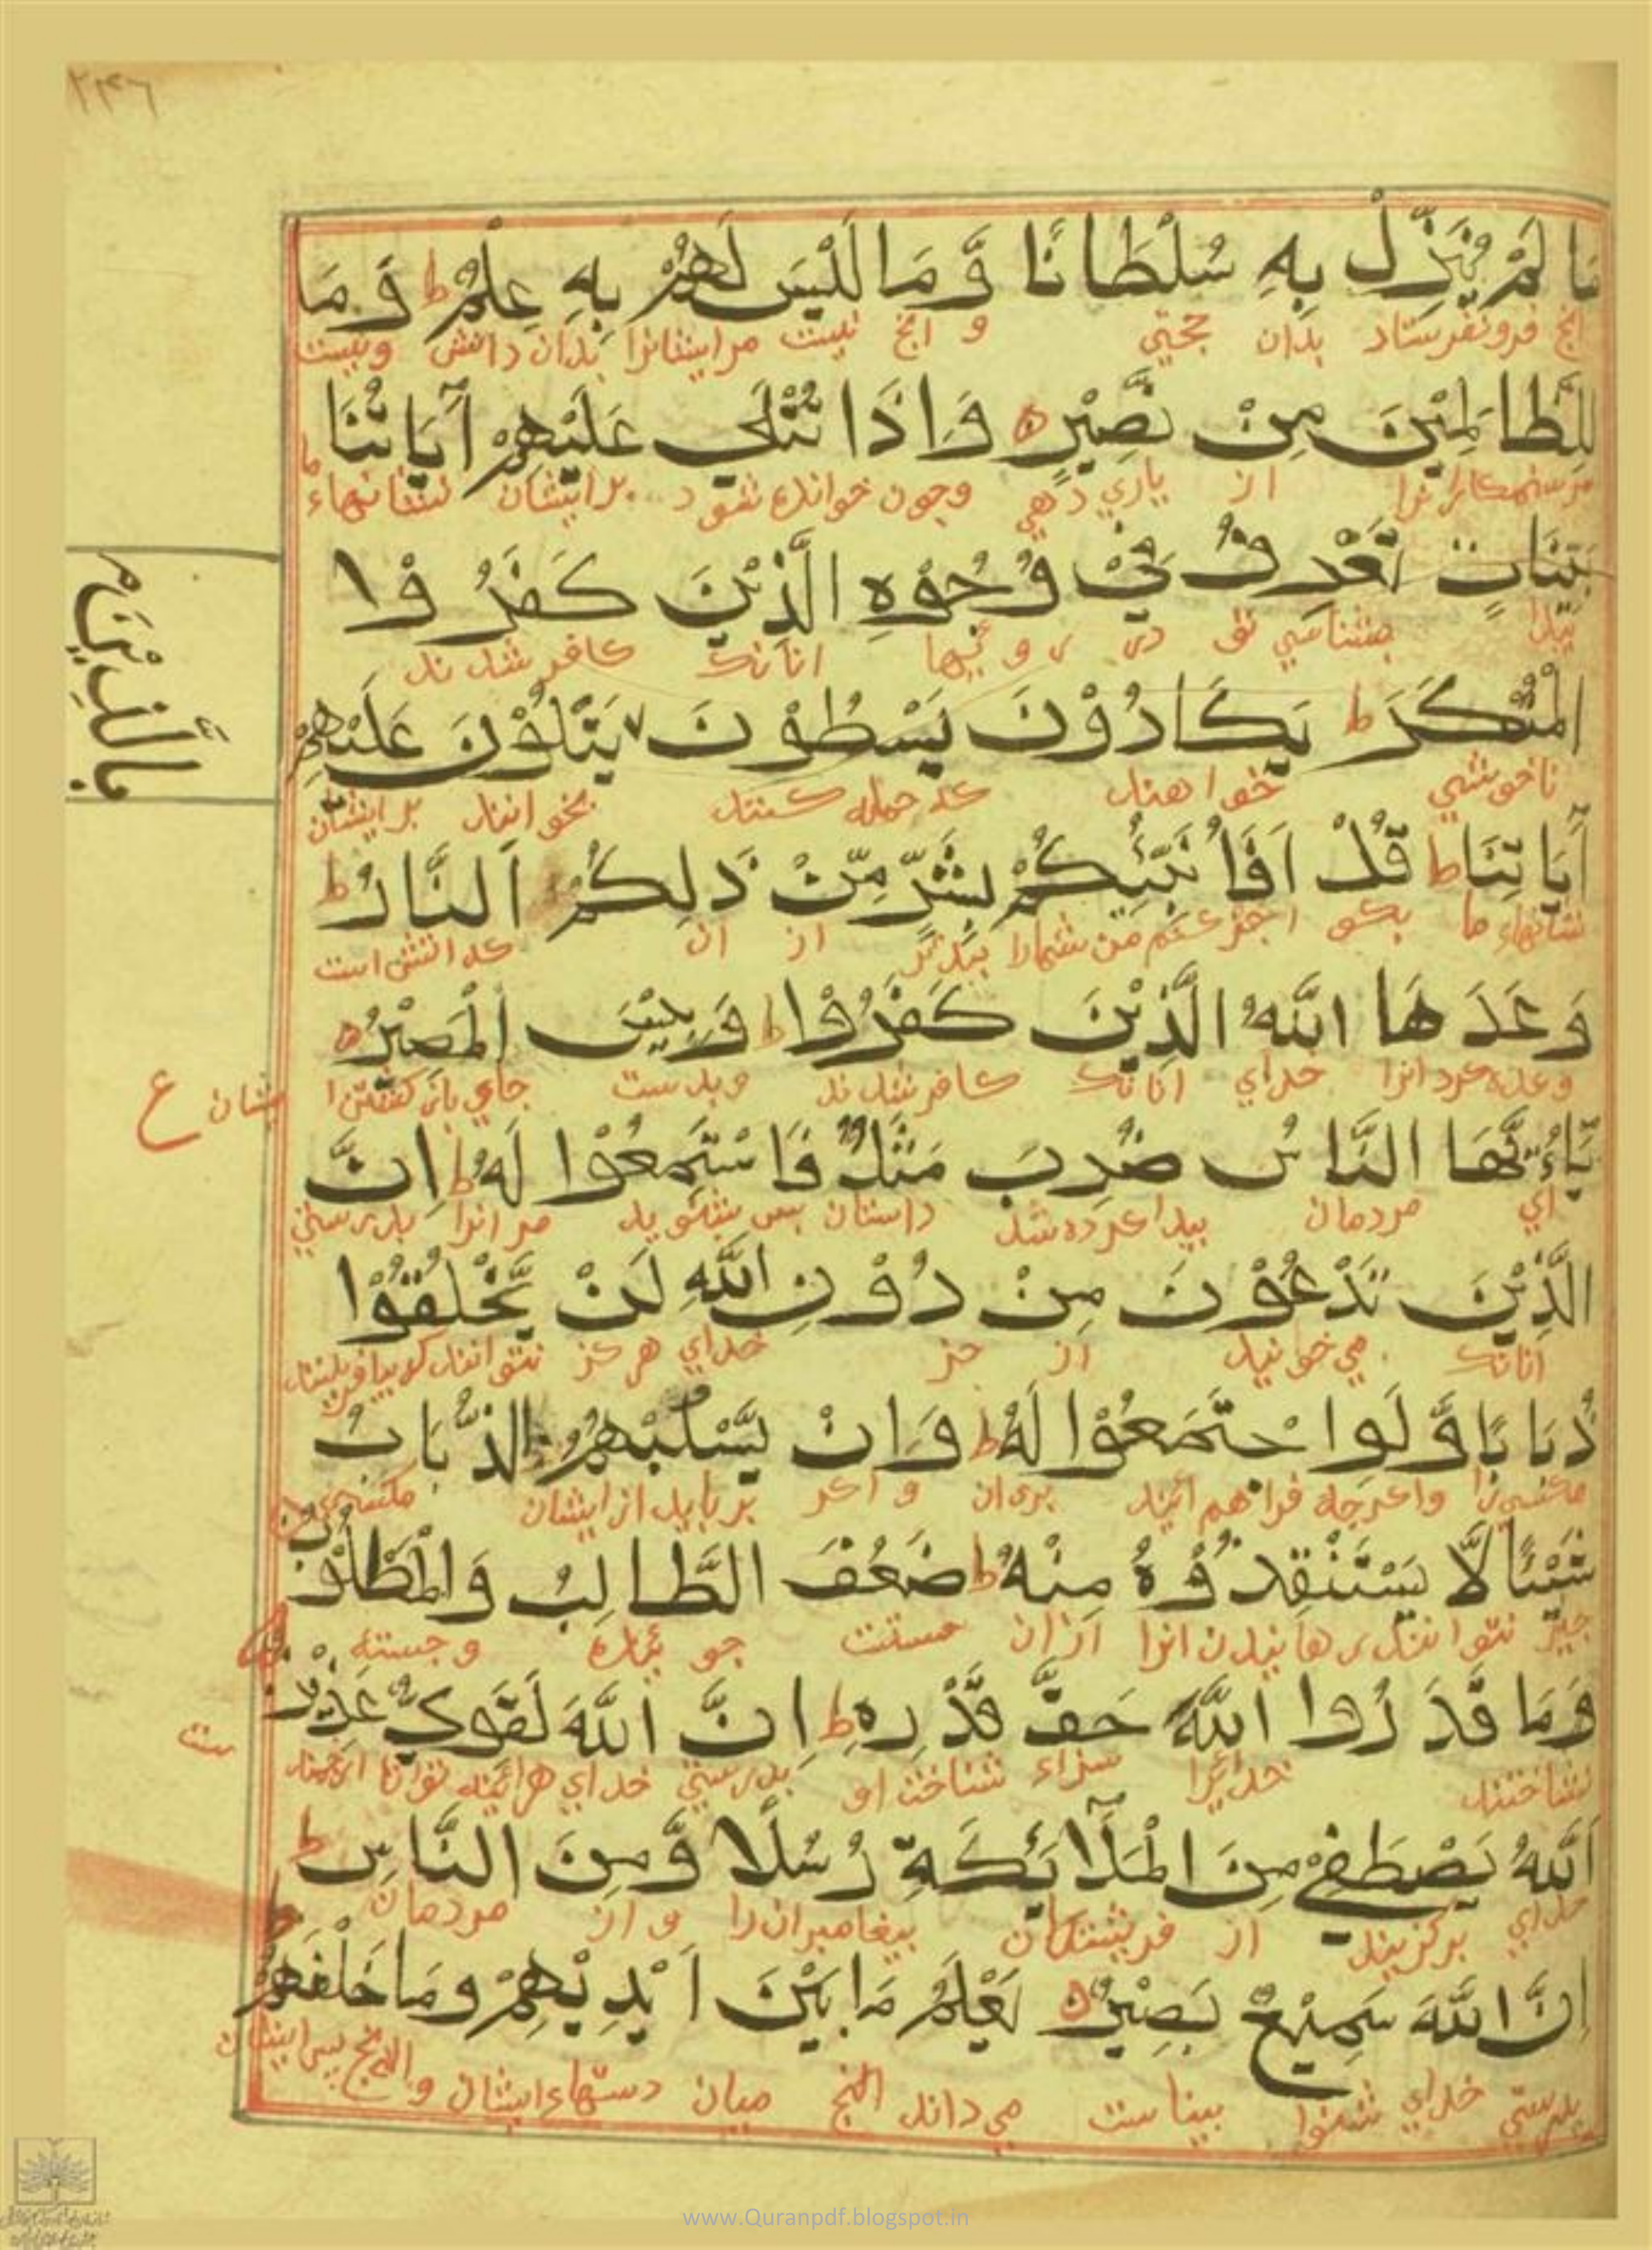 ٢٣٤٦
مَا لَمْ يُنَزِّلْ بِهِ سُلْطَانًا وَّمَا لَيْسَ لَهُمْ بِهِ عِلْمٌ ط وَمَا
انچ فرو نفرستاد بدان حجتي و انچ نيست مر ايشانرا بدان دانش ونيست
لِلظَّالِمِيْنَ مِنْ نَّصِيْرٍ ه وَاِذَا تُتْلَى عَلَيْهِمْ آيَاتُنَا
مر ستمكارانرا از ياري دهي وچون خوانده شود بر ايشان نشانهاء ما
بَيِّنَاتٍ تَعْرِفُ فِيْ وُجُوْهِ الَّذِيْنَ كَفَرُوْا
پيدا بشناسي تو در رويها انانك كافر شدند
بِالَّذِيْنَ
الْمُنْكَرَ ط يَكَادُوْنَ يَسْطُوْنَ يَتْلُوْنَ عَلَيْهِمْ
ناخوشي خواهند كه حمله كنند بخوانند بر ايشان
آيَاتِنَا ط قُلْ اَفَاُنَبِّئُكُمْ بِشَرٍّ مِّنْ ذَلِكُمْ اَلنَّارُ ط
نشانهاء ما بكو كنم من شمارا ببدتر از ان كه اتش است
وَعَدَهَا اللّٰهُ الَّذِيْنَ كَفَرُوْا ط وَبِئْسَ الْمَصِيْرُ ه
وعده كرد انرا خداي انانك كافر شدند وبدست جاي باز كشتن ايشان ع
يَاءَيُّهَا النَّاسُ ضُرِبَ مَثَلٌ فَاسْتَمِعُوْا لَهُ ط اِنَّ
اي مردمان پيدا كرده شد داستان بس بشنويد مر انرا بدرستي
الَّذِيْنَ تَدْعُوْنَ مِنْ دُوْنِ اللّٰهِ لَنْ يَّخْلُقُوْا
انانك مي خوانيد از جز خداي هركز نتوانند كه بيافرينند
ذُبَابًا وَّلَوِ اجْتَمَعُوْا لَهُ ط وَاِنْ يَّسْلُبْهُمُ الذُّبَابُ
مكسي را واكرچه فراهم ايند بران و اكر بربايد از ايشان مكسي
شَيْئًا لَّا يَسْتَنْقِذُوْهُ مِنْهُ ط ضَعُفَ الطَّالِبُ وَالْمَطْلُوْبُ
چيزي نتوانند رهانيدن انرا از ان سست جوينده و جسته
وَمَا قَدَرُوا اللّٰهَ حَقَّ قَدْرِهِ ط اِنَّ اللّٰهَ لَقَوِيٌّ عَزِيْزٌ
نشناختند خدايرا سزاء شناخت او بدرستي خداي هراينه توانا ارجمند ست
اَللّٰهُ يَصْطَفِيْ مِنَ الْمَلَآئِكَةِ رُسُلًا وَّمِنَ النَّاسِ ط
خداي بركزيند از فرشتكان پيغامبران را و از مردمان
اِنَّ اللّٰهَ سَمِيْعٌ بَصِيْرٌ ه يَعْلَمُ مَا بَيْنَ اَيْدِيْهِمْ وَمَا خَلْفَهُمْ
بدرستي خداي شنوا بيناست مي داند انچ ميان دستهاء ايشان و انچ پس ايشان
www.Quranpdf.blogspot.in